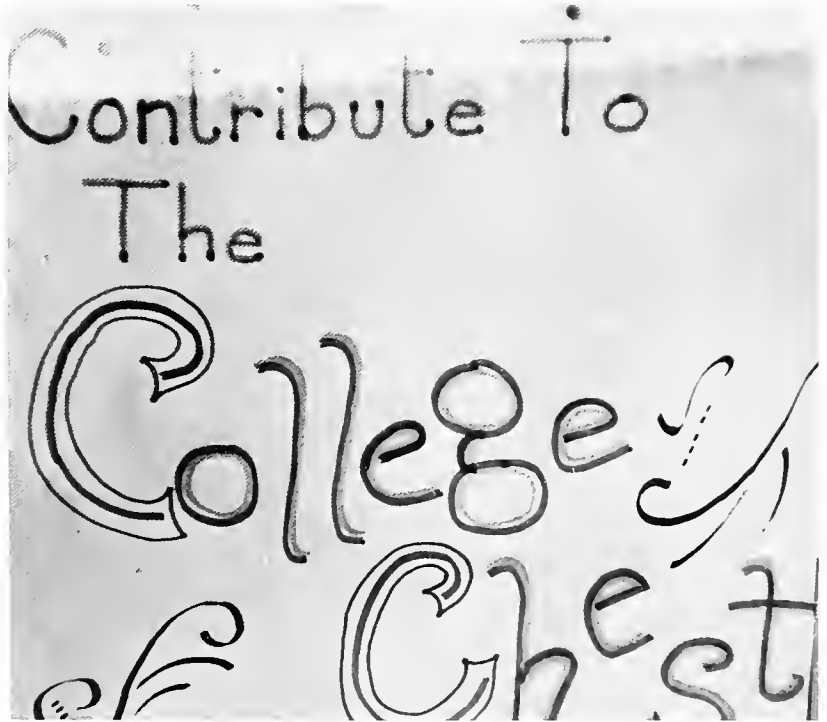 Contribute To
The
College
Chest